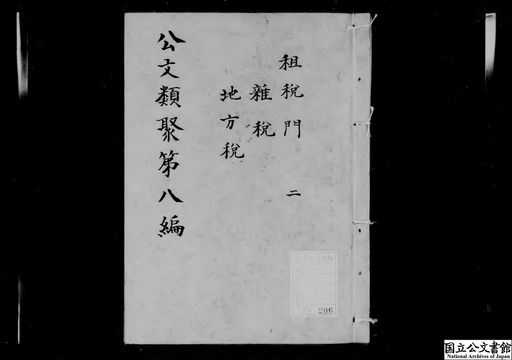 租税門 二
雑税
地方税
公文類聚第八編
206
国立公文書館
National Archives of Japan